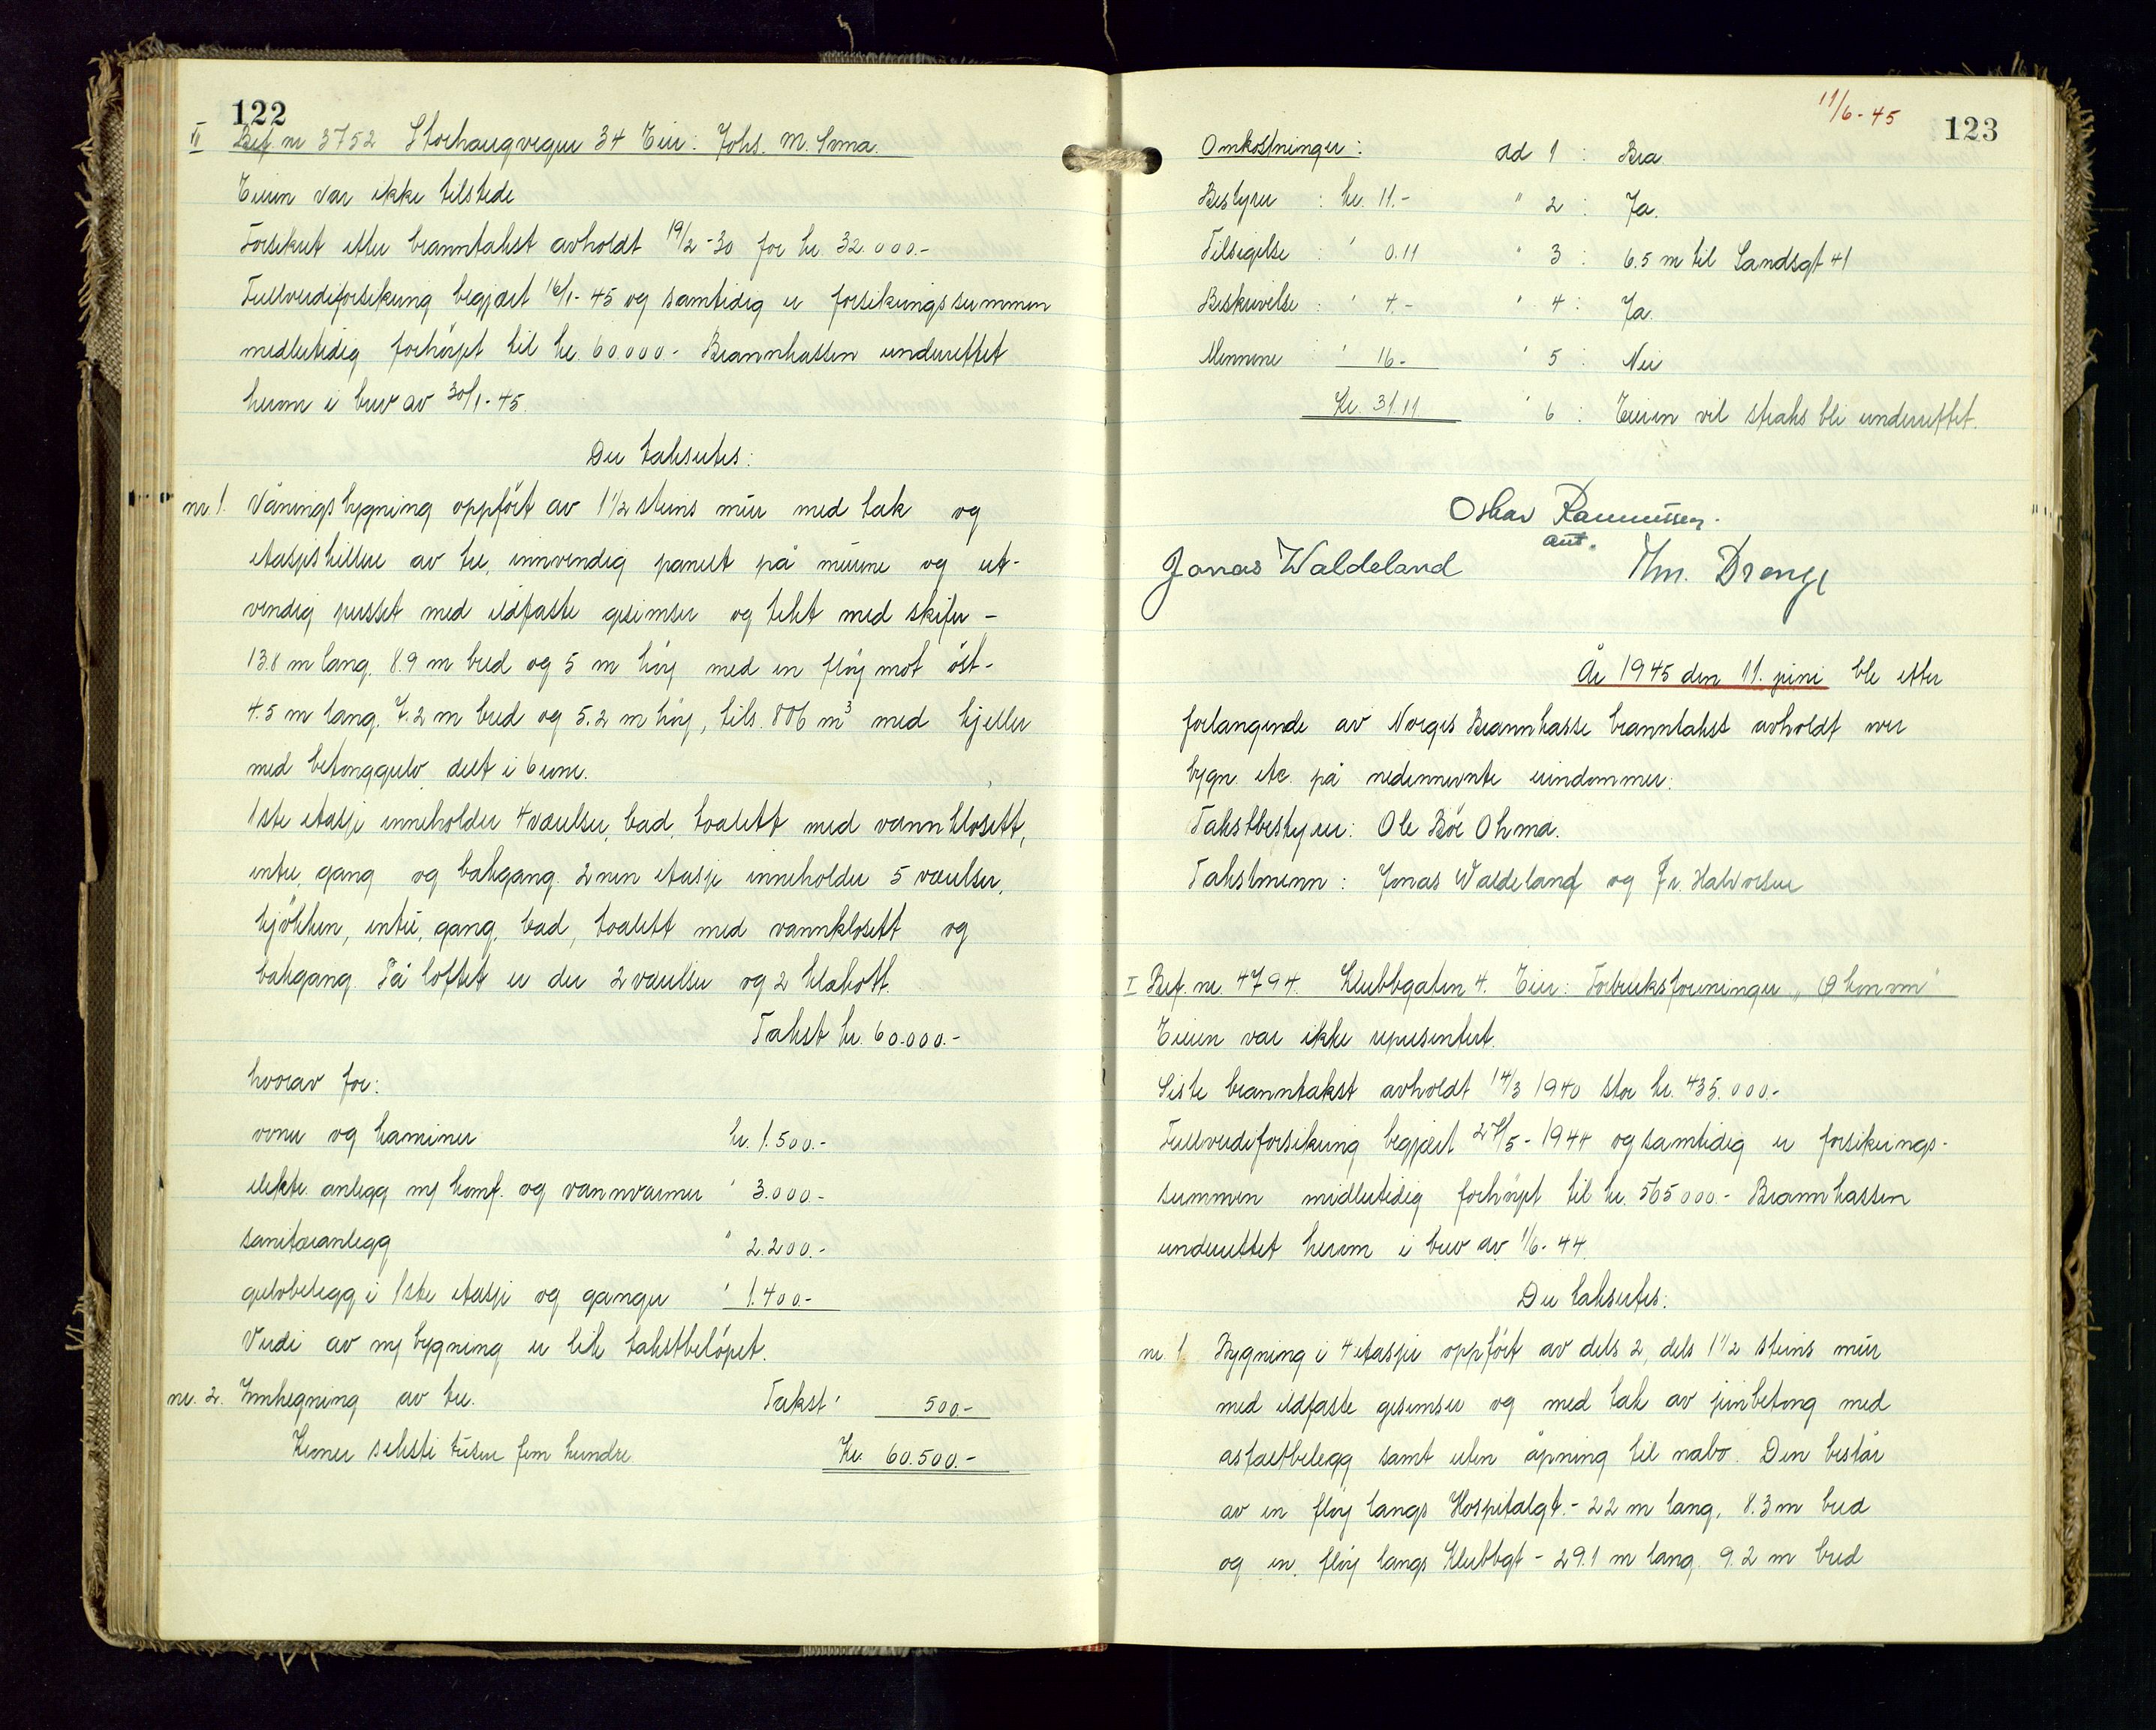 122
II Bef. nr 3752 Storhaugvegen 34 Eier: Johs. M. Sorma.
Eieren var ikke tilstede
Forsikret etter branntakst avholdt 19/2-30 for kr. 32.000.-
Fullverdiforsikring begjært 16/1-45 og samtidig er forsikringssummen
midlertidig forhöyet til kr. 60.000.- Brannkassen underrettet
herom i brev av 30/1-45.
Der takseres:
nr. 1. Våningsbygning oppfört av 1 1/2 steins mur med tak og
etasjeskiller av tre, innvendig panelt på murene og ut-
vendig pusset med ildfaste gesimser og tekt med skifer -
13.8 m lang, 8.9 m bred og 5 m höy med en flöy mot öst-
4.5 m lang, 7.2 m bred og 5.2 m höy, tils. 806 m³ med kjeller
med betonggulv delt i 6 rom.
1ste etasje inneholder 4 værelser, bad, toalett med vannklosett,
entre, gang og bakgang. 2nen etasje inneholder 5 værelser,
kjökken, entre, gang, bad, toalett med vannklosett og
bakgang. På loftet er der 2 værelser og 2 klæskott.
Takst kr. 60.000.-
hvorav for:
ovner og kaminer kr. 1.500.-
elektr. anlegg m/ komf. og vannvarmer " 3.000.-
sanitæranlegg " 2.200.-
gulvbelegg i 1ste etasje og ganger " 1.400.-
Verdi av ny bygning er lik takstbelöpet.
nr. 2. Innhegning av tre. Takst " 500.-
Kroner seksti tusen fem hundre Kr. 60.500.-
11/6-45 123
Omkostninger: ad 1 : Bra
Bestyrer : kr. 11.- " 2 : Ja.
Tilsigelse : " 0.11 " 3 : 6.5 m til Landsgt 41
Beskrivelse : " 4.- " 4 : Ja.
Mennene : " 16.- " 5 : Nei
Kr. 31.11 " 6 : Eieren vil straks bli underrettet.
Oskar Rasmussen.
aut.
Jonas Waldeland Thv. Drange
År 1945 den 11. juni ble etter
forlangende av Norges Brannkasse branntakst avholdt over
bygn. etc. på nedennevnte eiendommer:
Takstbestyrer: Ole Bör Ohma.
Takstmenn: Jonas Waldeland og Fr. Halvorsen
I Bef. nr. 4794. Klubbgaten 4. Eier: Forbruksforeningen "Økonom"
Eieren var ikke representert.
Siste branntakst avholdt 14/3 1940 stor kr. 435.000.-
Fullverdiforsikring begjært 27/5-1944 og samtidig er forsikrings-
summen midlertidig forhöyet til kr. 565000.- Brannkassen
underrettet herom i brev av 1/6-44.
Der takseres:
nr. 1 Bygning i 4 etasjer oppfört av dels 2, dels 1 1/2 steins mur
med ildfaste gesimser og med tak av jernbetong med
asfaltbelegg samt uten åpning til nabo. Den består
av en flöy langs Hospitalgt.- 22 m lang, 8.3 m bred
og en flöy langs Klubbgt - 29.1 m lang 9.2 m bred